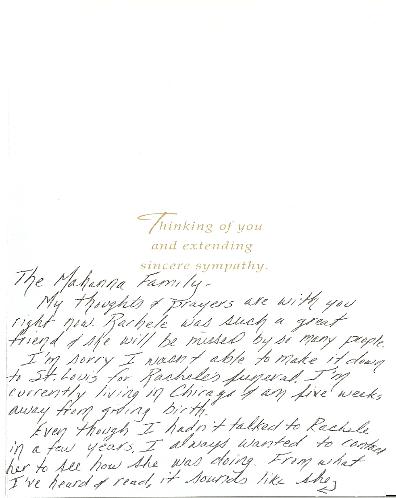 Thinking of you
and extending
sincere sympathy.
The Mahanna Family-
My thoughts & prayers are with you
right now. Rachele was such a great
friend & she will be missed by so many people.
I'm sorry I wasn't able to make it down
to St. Louis for Rachele's funeral. I'm
currently living in Chicago & am five weeks
away from giving birth.
Even though I hadn't talked to Rachele
in a few years, I always wanted to contact
her to see how she was doing. From what
I've heard & read, it sounds like she